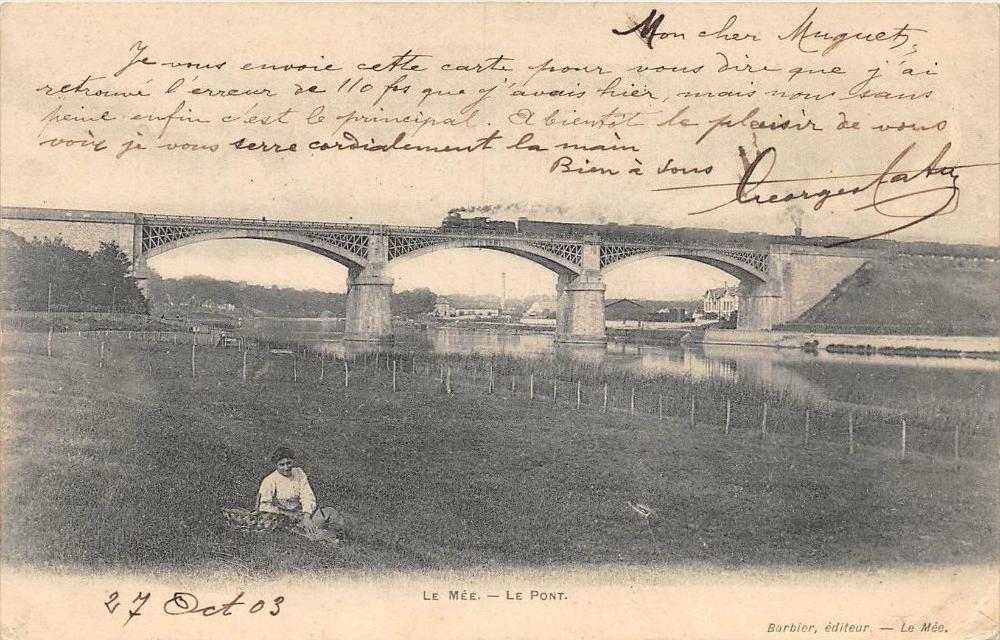 Mon cher Muguet,
Je vous envoie cette carte pour vous dire que j'ai
retrouvé l'erreur de 110 frs que j'avais hier, mais non sans
peine enfin c'est le principal. A bientôt le plaisir de vous
voir je vous serre cordialement la main
Bien à vous
Georges
LE MÉE. — LE PONT.
27 Oct 03
Barbier, éditeur. — Le Mée.